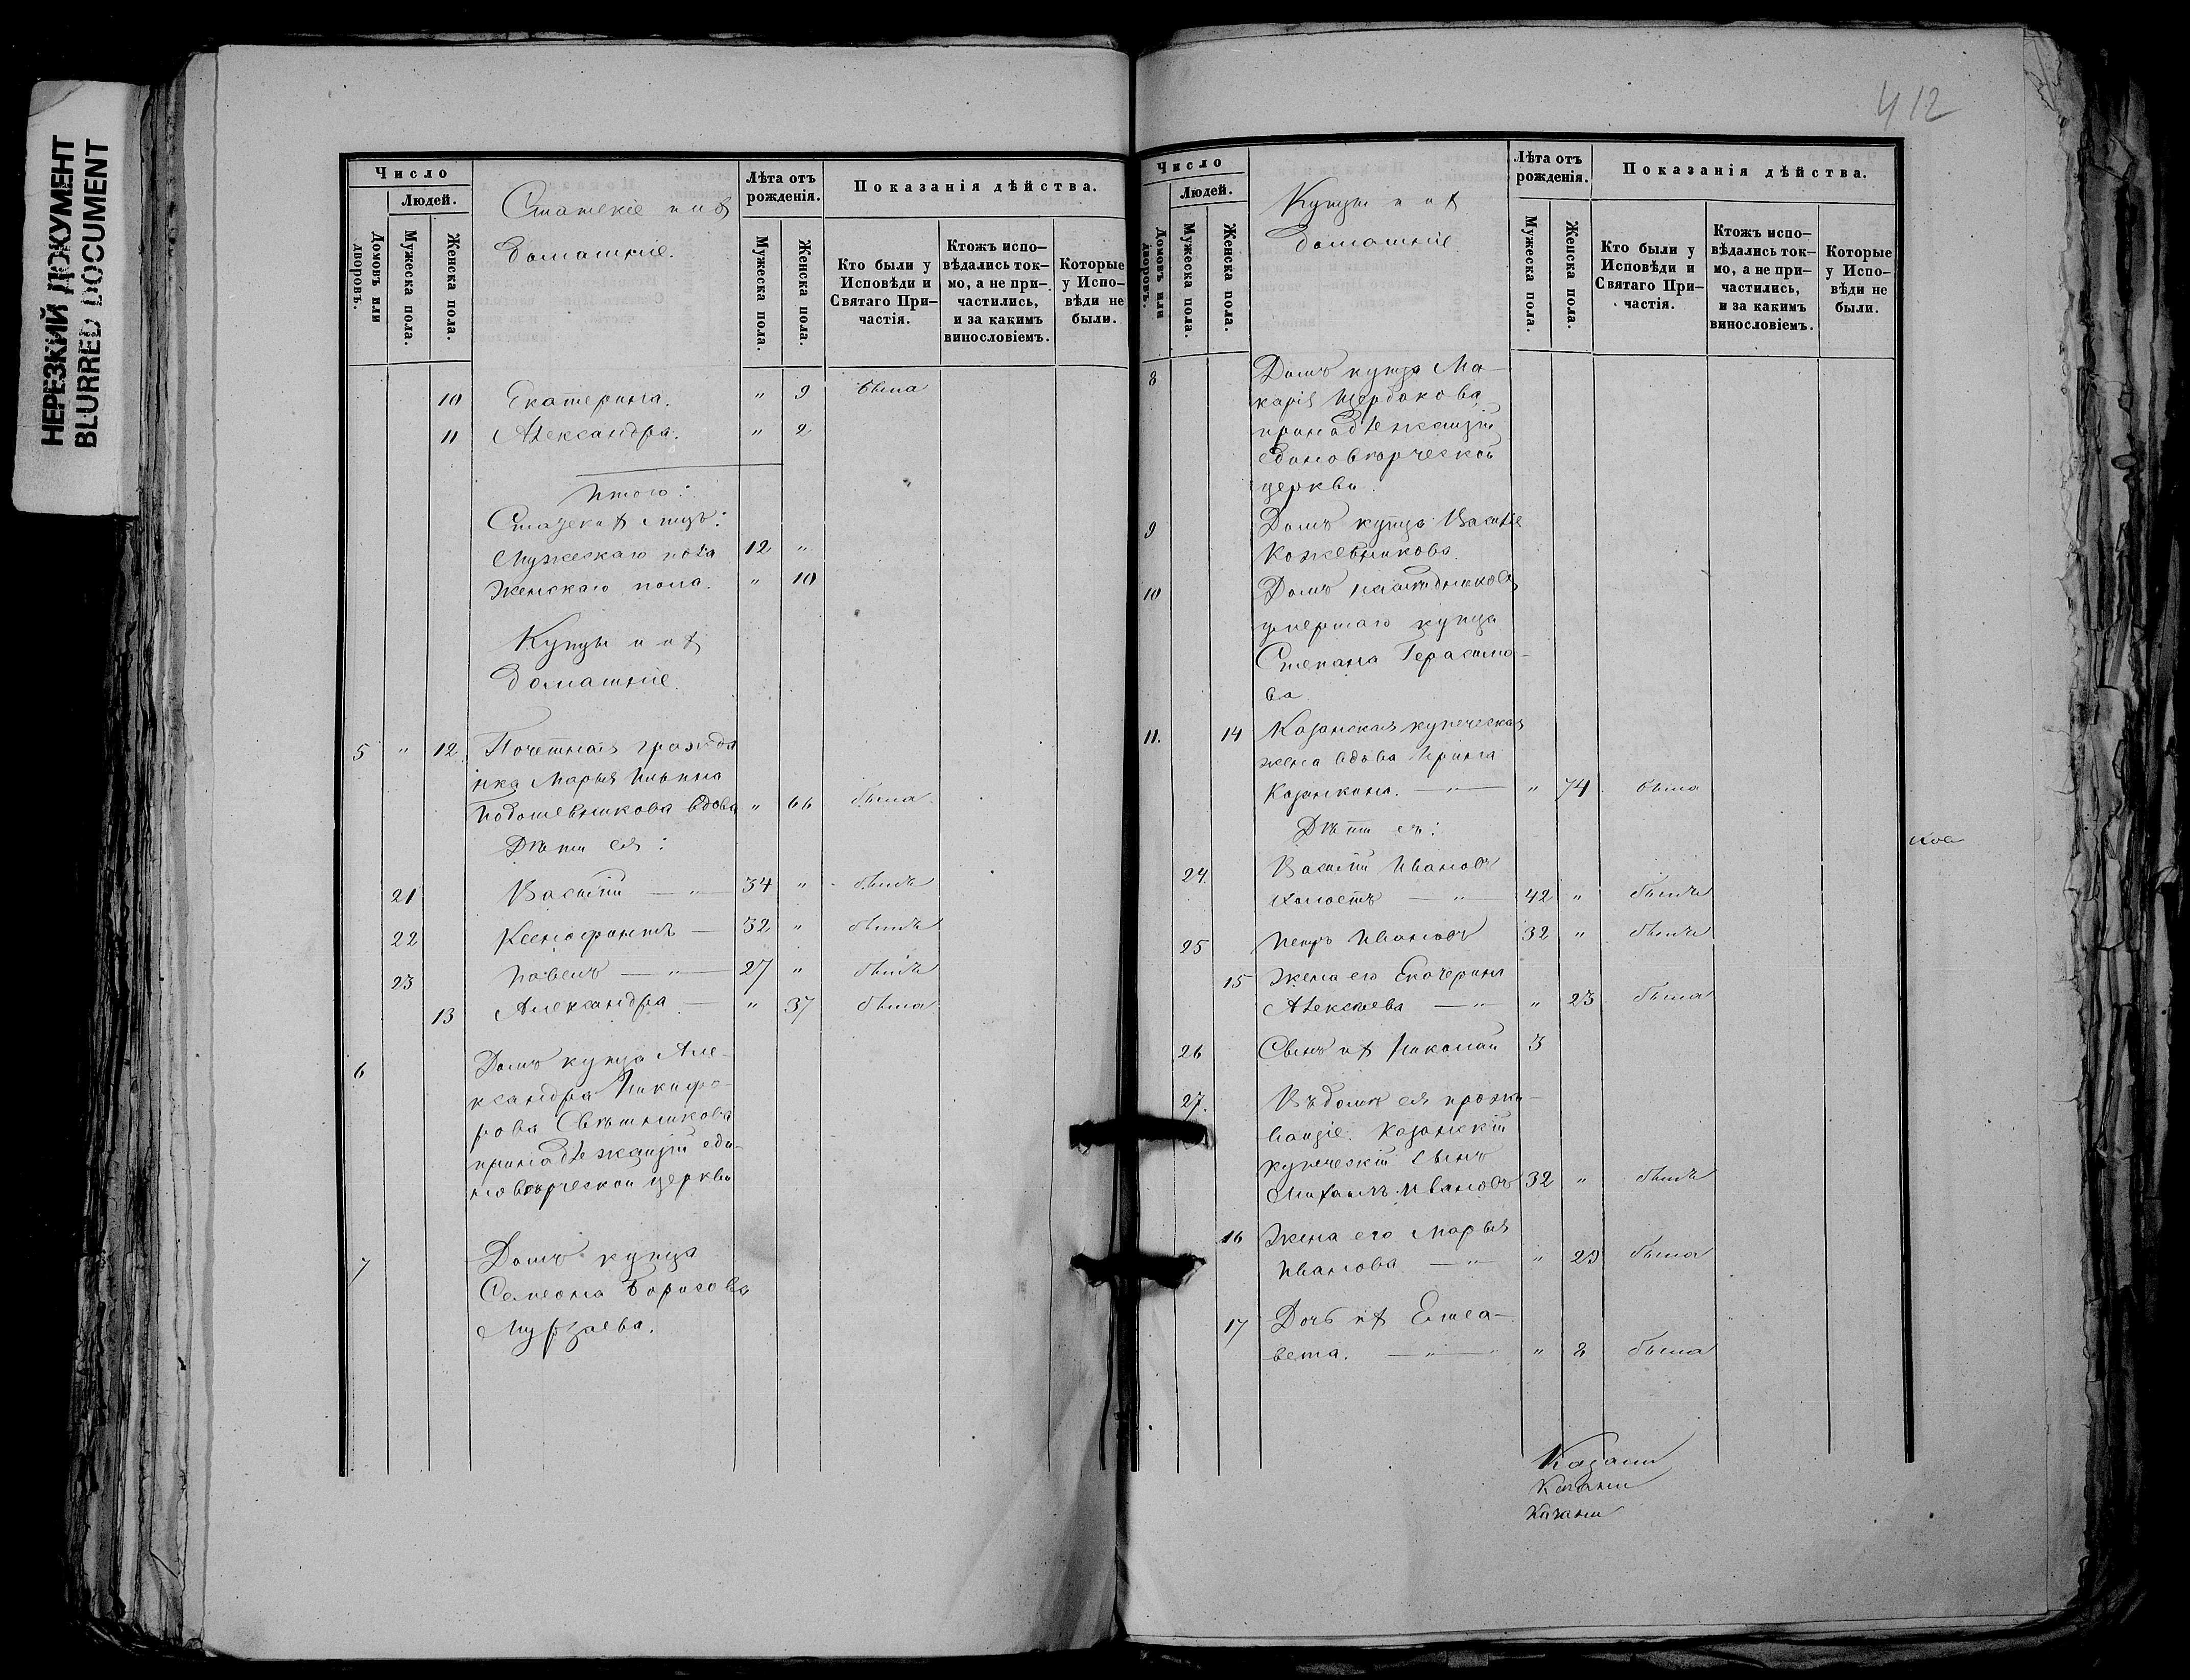 НЕРЕЗКИЙ ДОКУМЕНТ
BLURRED DOCUMENT
Число
Людей.
Домовъ или дворовъ.
Мужеска пола.
Женска пола.
Статскіе и ихъ
домашніе.
Лѣта отъ рожденія.
Мужеска пола.
Женска пола.
Показанія дѣйства.
Кто были у Исповѣди и Святаго Причастія.
Ктожъ исповѣдались токмо, а не причастились, и за какимъ винословіемъ.
Которые у Исповѣди не были.
10 Екатерина. " 9 была
11 Александра. " 2
Итого:
Статских лицъ:
Мужескаго пола 12 "
Женскаго пола. " 10
Купцы и ихъ
домашніе.
5 " 12 Почетная гражда
нка Марья Ильина
Подошевникова вдова " 66 была
Дѣти ея:
21 Василій — " — 34 " былъ
22 Ксенофонтъ — 32 " былъ
23 Павелъ — " — 27 " былъ
13 Александра — " 37 была
6 Домъ купца Але-
ксандра Никифо-
рова Свѣшникова
принадлежащій еди-
новѣрческой церкви
7 Домъ купца
Семеона Борисова
Мурзаева.
412
Число
Людей.
Домовъ или дворовъ.
Мужеска пола.
Женска пола.
Купцы и ихъ
домашніе.
Лѣта отъ рожденія.
Мужеска пола.
Женска пола.
Показанія дѣйства.
Кто были у Исповѣди и Святаго Причастія.
Ктожъ исповѣдались токмо, а не причастились, и за какимъ винословіемъ.
Которые у Исповѣди не были.
8 Домъ купца Ма-
карія Щербакова
принадлежащій
единовѣрческой
церкви.
9 Домъ купца Василіе
Кожевникова.
10 Домъ наслѣдниковъ
умершаго купца
Степана Герасимо-
ва
11. 14 Казанская купеческая
жена вдова Ирина
Казанкина. — " — " 74 была
Дѣти ея:
24. Василій Ивановъ
холостъ — " — 42 " былъ
25 Петръ Ивановъ 32 " былъ
15 Жена его Екатерина
Алексѣева — " — " 23 была
26 Сынъ ихъ Николай 3
27. Въ домѣ ея прожи-
вающіе: Казанскій
купеческій сынъ
Михаилъ Ивановъ 32 " былъ
16 Жена его Марья
Иванова — " — " 29 была
17 Дочь ихъ Елиса-
вета. — " — " " 8 была
Казани
Казани
Казани